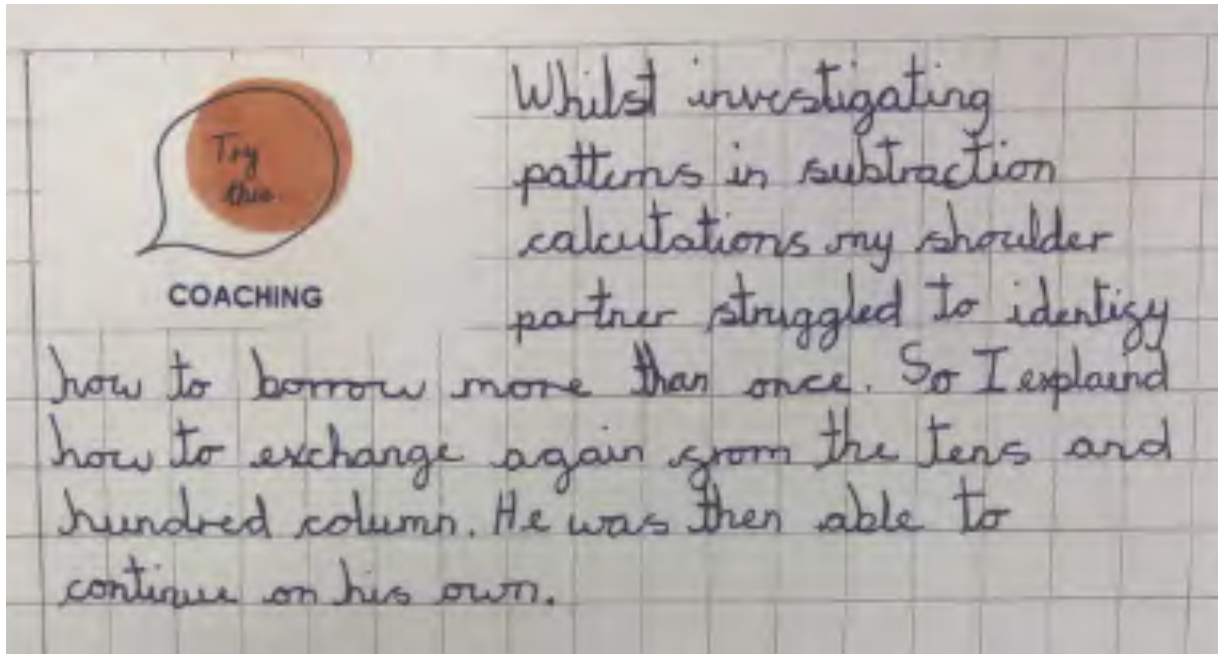 Try
this.
COACHING
Whilst investigating
patterns in subtraction
calculations my shoulder
partner struggled to identify
how to borrow more than once. So I explaind
how to exchange again from the tens and
hundred column. He was then able to
continue on his own.